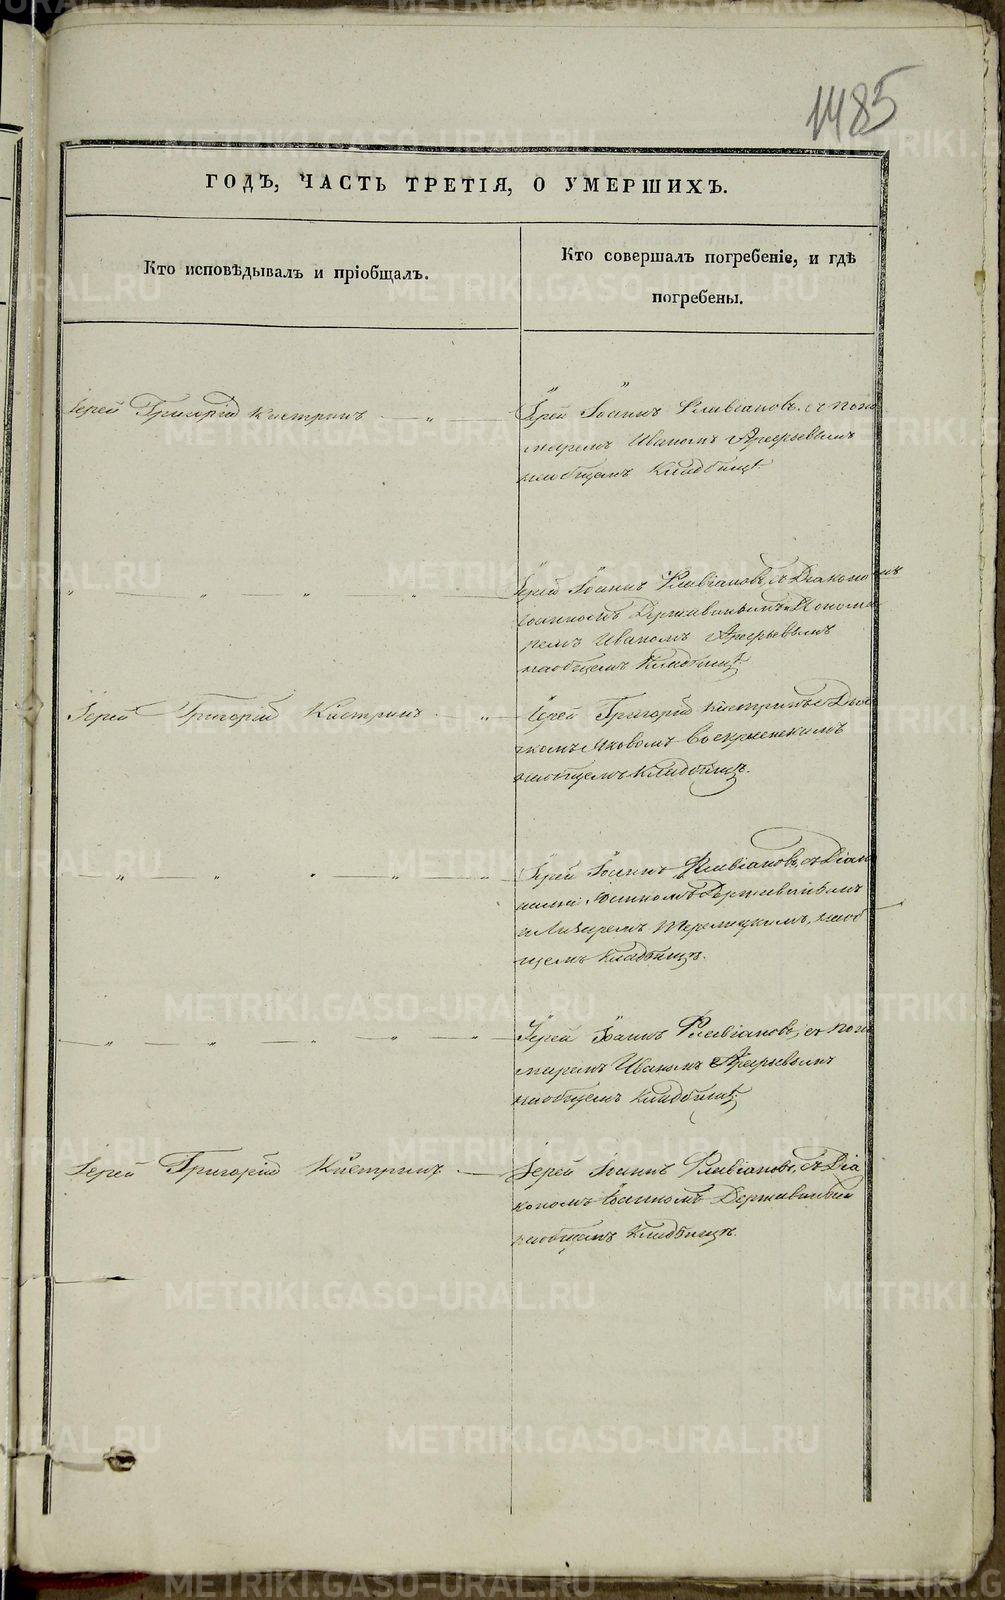 1485
ГОДЪ, ЧАСТЬ ТРЕТІЯ, О УМЕРШИХЪ.
Кто исповѣдывалъ и пріобщалъ.
Кто совершалъ погребеніе, и гдѣ
погребены.
Іерей Григорій Кистринъ — „ —
Іерей Іоаннъ Флавіановъ, съ поно
маремъ Иваномъ Арефьевымъ
на общемъ Кладбищѣ
„ „ „ „
Іерей Іоаннъ Флавіановъ, съ Діакономъ
Іоанномъ Державинымъ и Понома
ремъ Иваномъ Арефьевымъ
на общемъ Кладбищѣ
Іерей Григорій Кистринъ — „ —
Іерей Григорій Кистринъ съ Дья
чкомъ Яковомъ Воскресенскимъ
на общемъ Кладбищѣ.
„ „ „ „ „
Іерей Іоаннъ Флавіановъ, съ Діако
нами Іоанномъ Державинымъ
и Лазаремъ, на об
щемъ Кладбищѣ.
„ „ „ „ „
Іерей Іоаннъ Флавіановъ, съ поно
маремъ Иваномъ Арефьевымъ
на общемъ Кладбищѣ.
Іерей Григорій Кистринъ —
Іерей Іоаннъ Флавіановъ, съ Діа
кономъ Іоанномъ Державинымъ
на общемъ Кладбищѣ.
METRIKI.GASO-URAL.RU